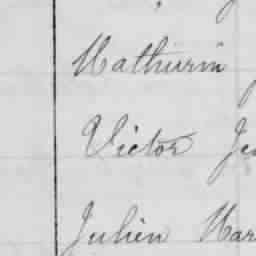 Mathurin
Victor
Julien